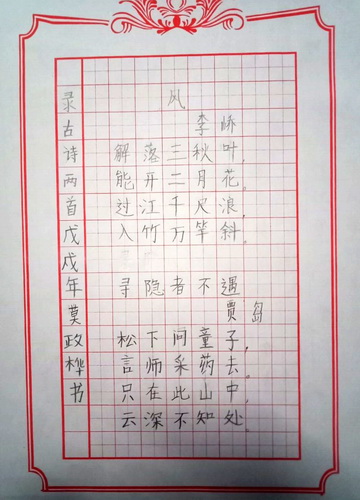 录古诗两首戊戌年莫政桦书
风
李峤
解落三秋叶，
能开二月花。
过江千尺浪，
入竹万竿斜。
寻隐者不遇
贾岛
松下问童子，
言师采药去。
只在此山中，
云深不知处。